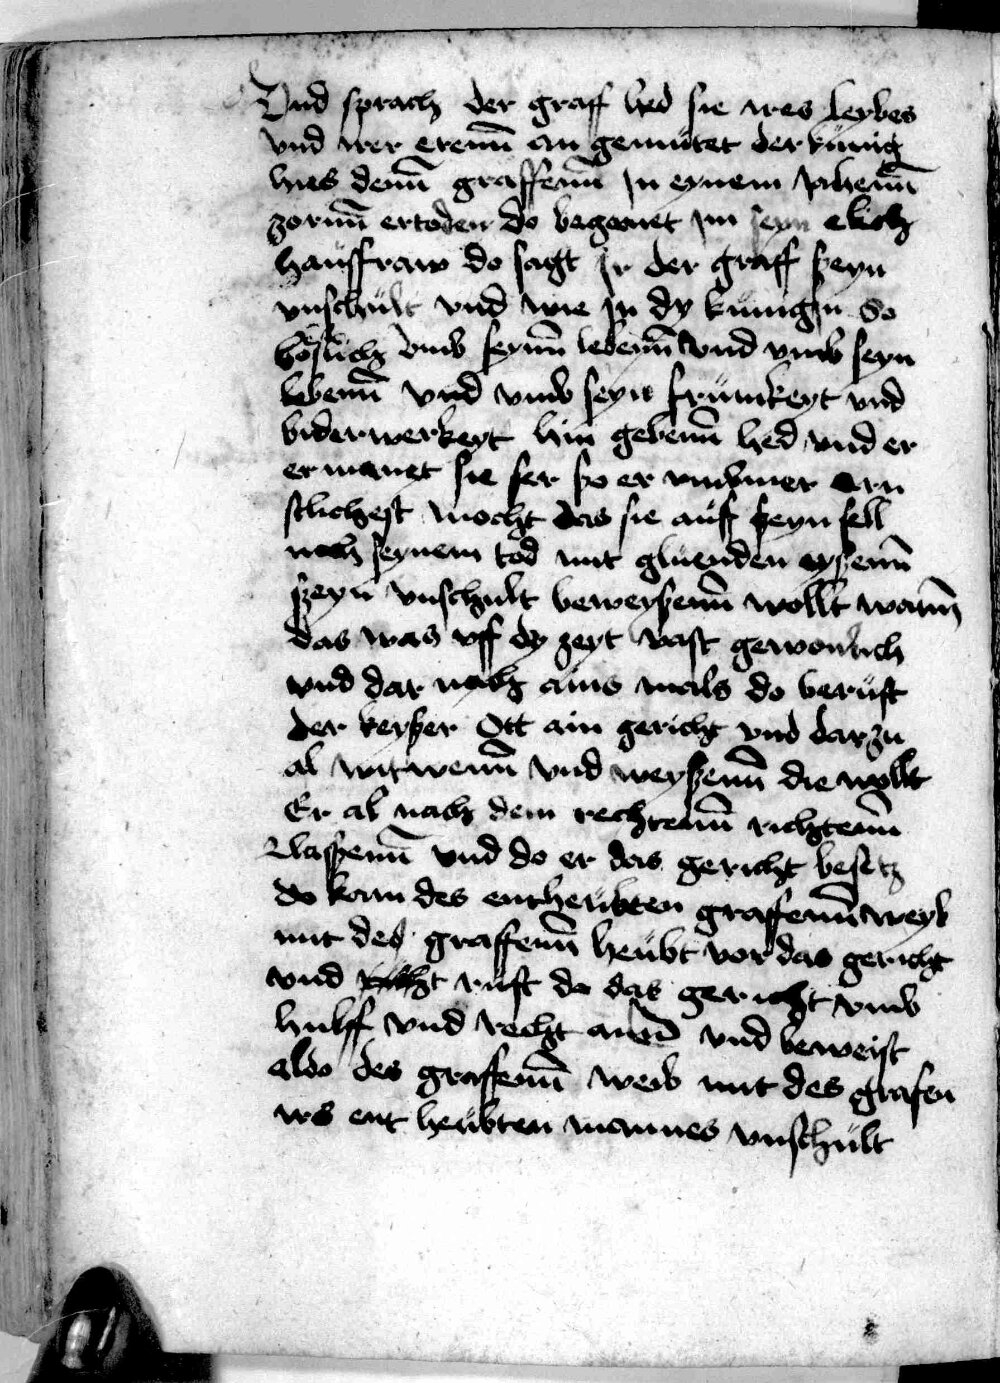 Vnd sprach der graff hed sie ires leybes
vnd irer erenn an gemutet der kunig
hies denn graffenn In eynem Jahenn
zornn ertoden do begeenet Im seyn elich
hausfraw do sagt Ir der graff seyn
vnschult vnd wie In dy kunigin So
boslich vmb seynn lebenn vnd vmb seyn
lebenn vnd vmb seyn frumkeyt vnd
biderwerkeyt hin gebenn hed vnd er
ermanet sie ser so er vmbmer ern
stlichest mocht das sie auff seyn sell
noch seynem tod mit gluenden eysenn
seyn vnschult beweysenn wollt wann
das was vff dy zeyt vast gewonlich
vnd dar nach ains mals do beruft
der keyser Ott ain gericht vnd darzu
al witwenn vnd weysenn die wollt
Er al nach dem rechtenn richtenn
lassenn vnd do er das gericht besetz
do kam des entheubten graffenn weyb
mit des graffenn heubt vor das gericht
vnd ruft do das gericht vmb
hulff vnd recht ann vnd beweist
aldo des graffenn weib mit des grafen
irs ent heubten mannes vnschult